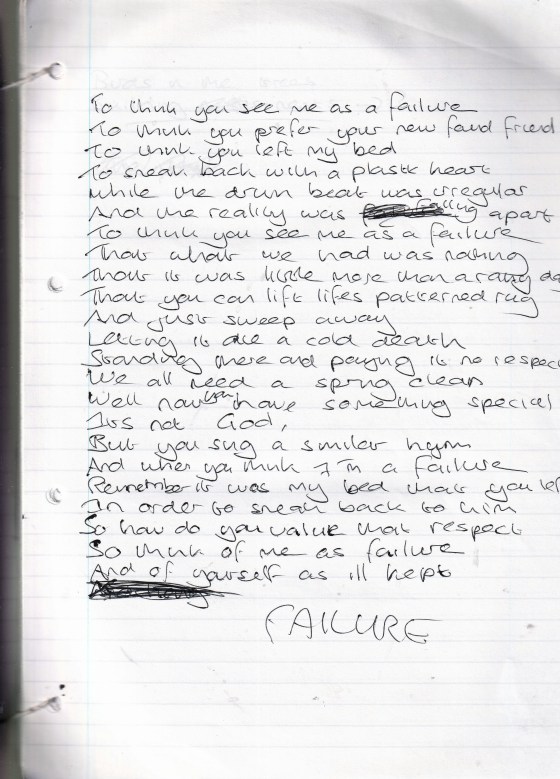 To think you see me as a failure
To think you prefer your new found friend
To think you left my bed
To sneak back with a plastic heart
While the drum beat was irregular
And the reality was falling apart
To think you see me as a failure
That what we had was nothing
That it was little more than a rainy da
That you can lift lifes patterned rug
And just sweep away
Letting it die a cold death
Standing there and paying it no respec
We all need a spring clean
Well now you have something special
Its not God,
But you sing a similar hymn
And when you think I'm a failure
Remember it was my bed that you lef
In order to sneak back to him
So how do you value that respect
So think of me as failure
And of yourself as ill kept
FAILURE